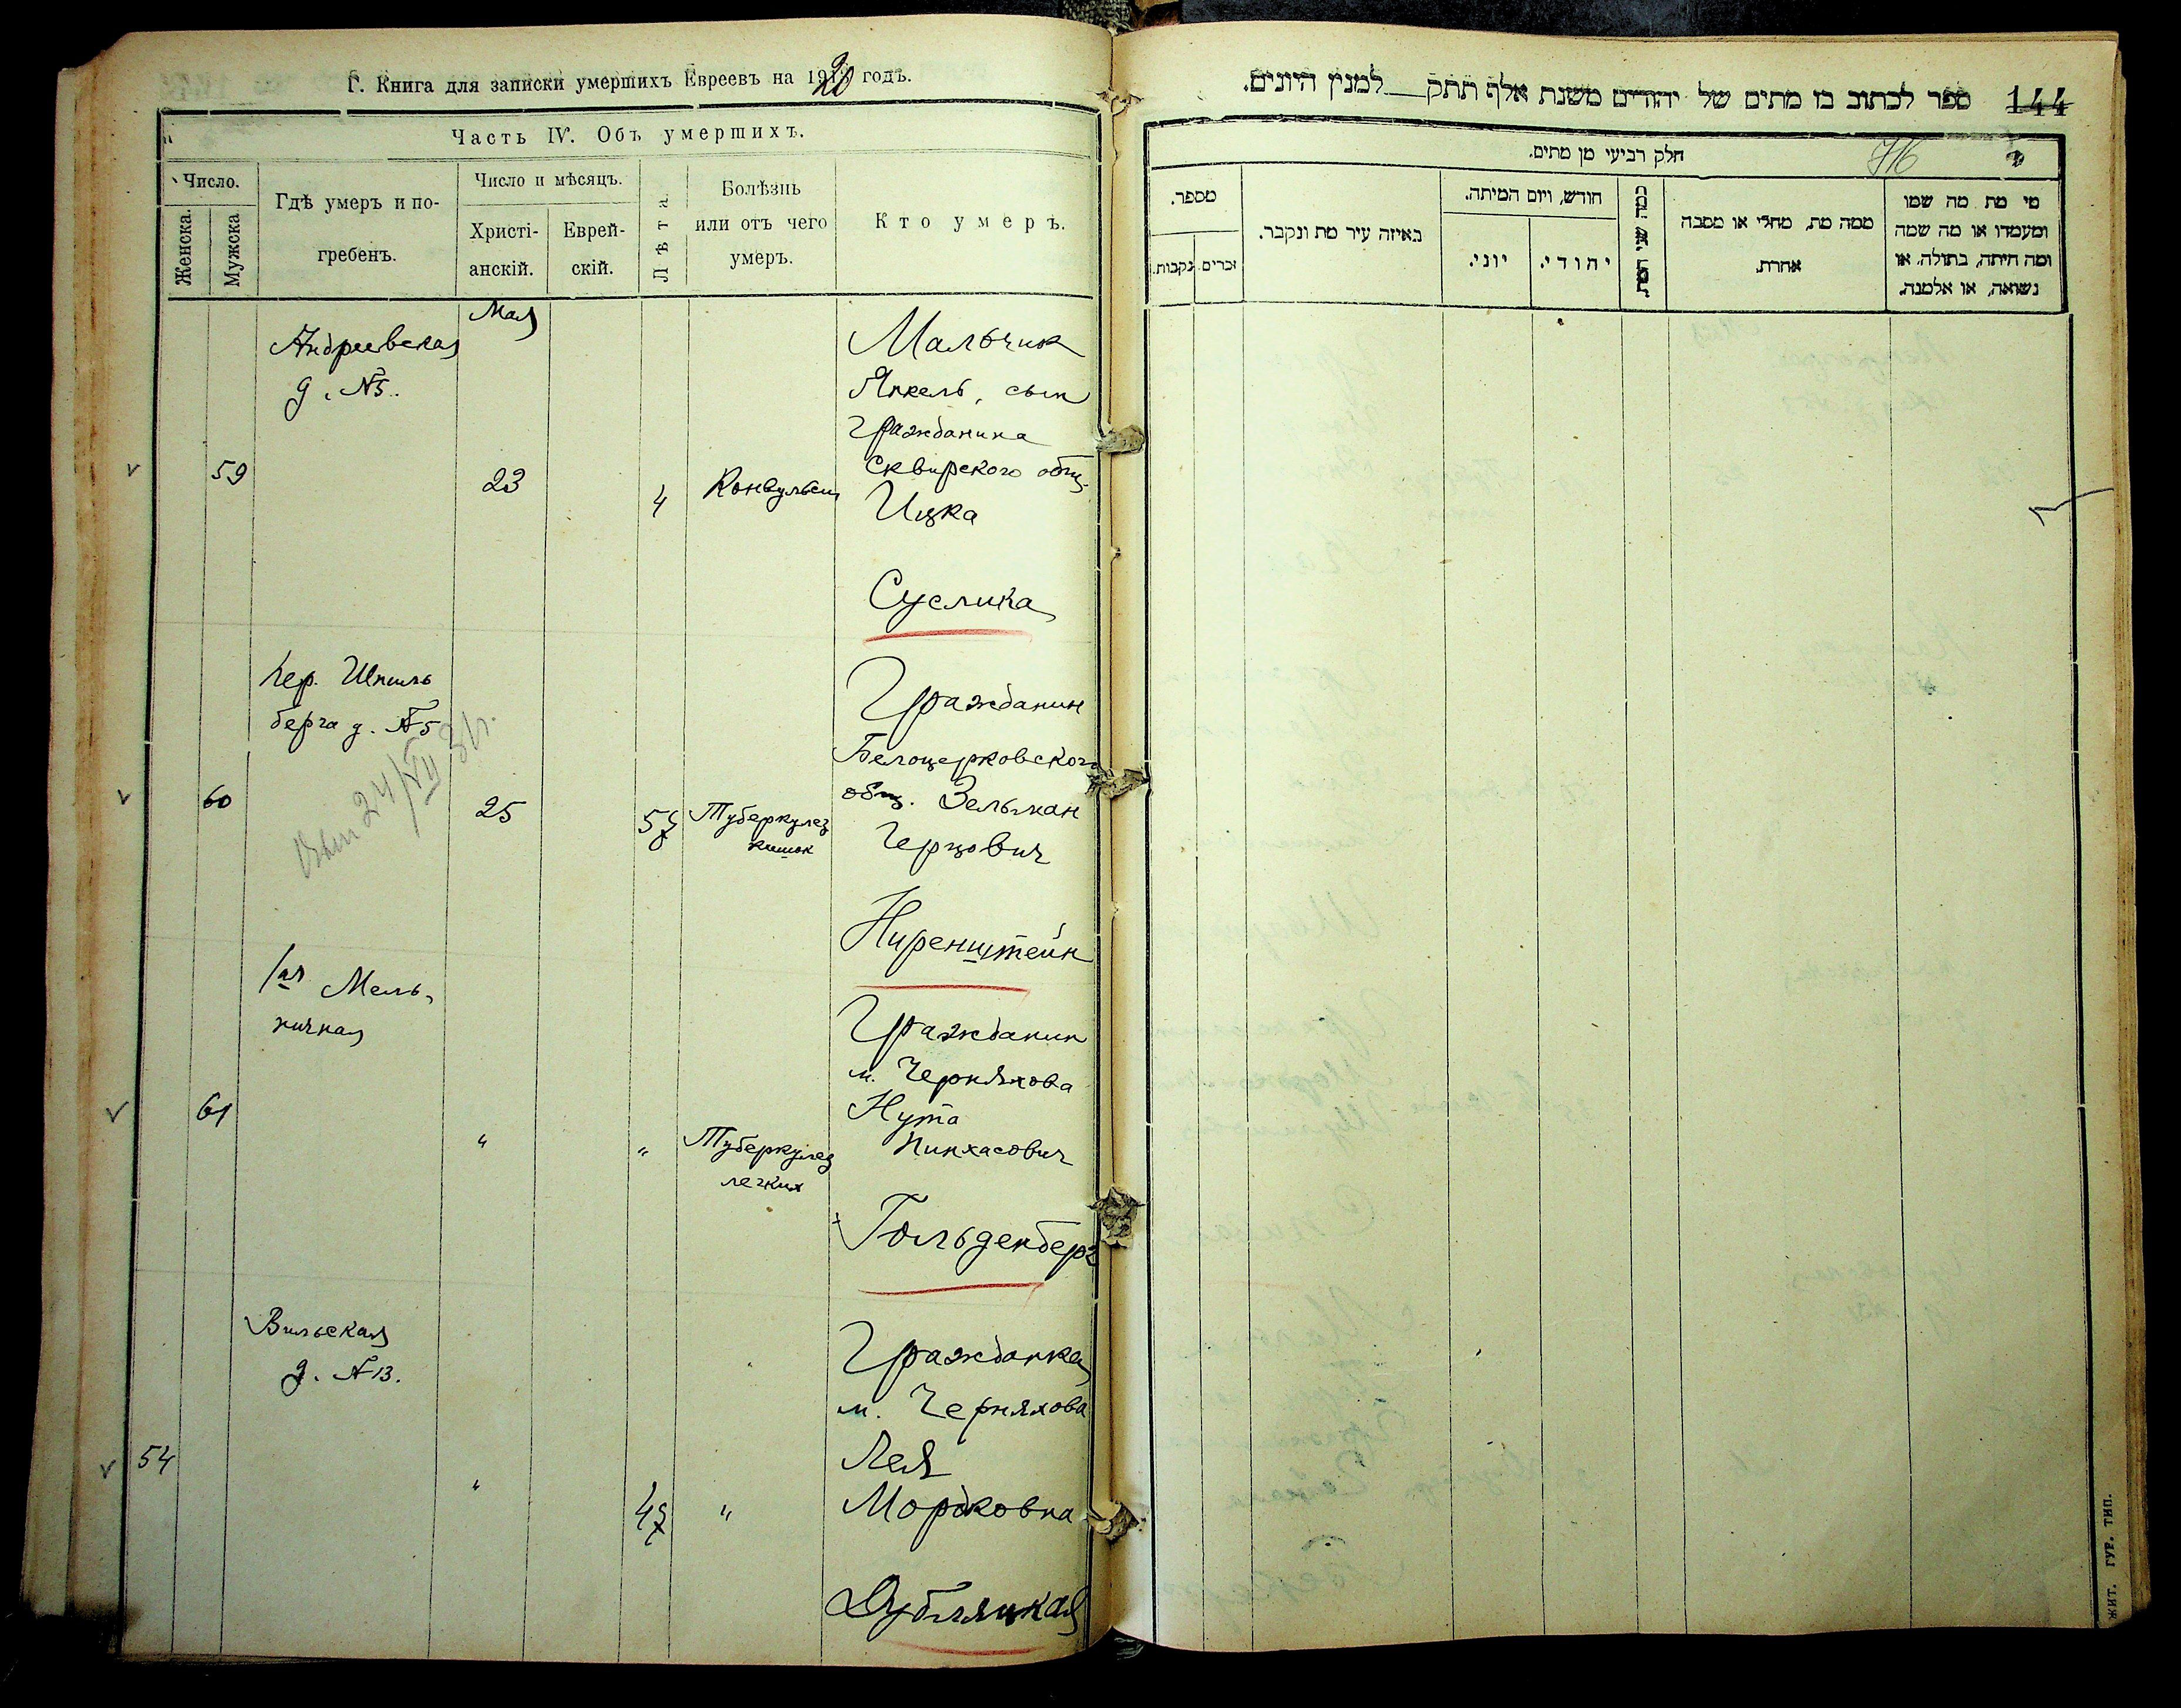 Г. Книга для записки умершихъ Евреевъ на 1920 годъ.
Часть IV. Объ умершихъ.
Число.
Женска.
Мужска
Гдѣ умеръ и по-
гребенъ.
Число и мѣсяцъ.
Христі-
анскій.
Еврей-
скій.
Лѣта.
Болѣзнь
или отъ чего
умеръ.
Кто умеръ.
Мая
59
Андреевская
д. №5.
23
4
Конвульсии
Мальчик
Янкель, сын
гражданина
Сквирского общ.
Ицка
Суслика
60
пер. Шпиль
берга д. №5
24/XII 31г.
25
57
Туберкулез
кишок
Гражданин
Белоцерковского
общ. Зельман
Герцович
Ниренштейн
61
1ая Мель-
ничная
"
"
Туберкулез
легких
Гражданин
м. Черняхова
Нута
Пинхасович
Гольденберг
54
Вильская
д. №13.
"
"
Гражданка
м. Черняхова
Лея
Мордковна
Дубляцкая
144
ספר לכתוב בו מתים של יהודים משנת אלף תתק___למנין היונים.
716
חלק רביעי מן מתים.
מי מת מה שמו
ומעמדו או מה שמה
ומה היתה, בתולה, או
נשואה, או אלמנה.
ממה מת, מחלי או מסבה
אחרת.
כמה שני המת
חודש, ויום המיתה.
יהודי.
יוני.
באיזה עיר מת ונקבר.
מספר.
זכרים
נקבות.
ЖИТ. ГУБ. ТИП.